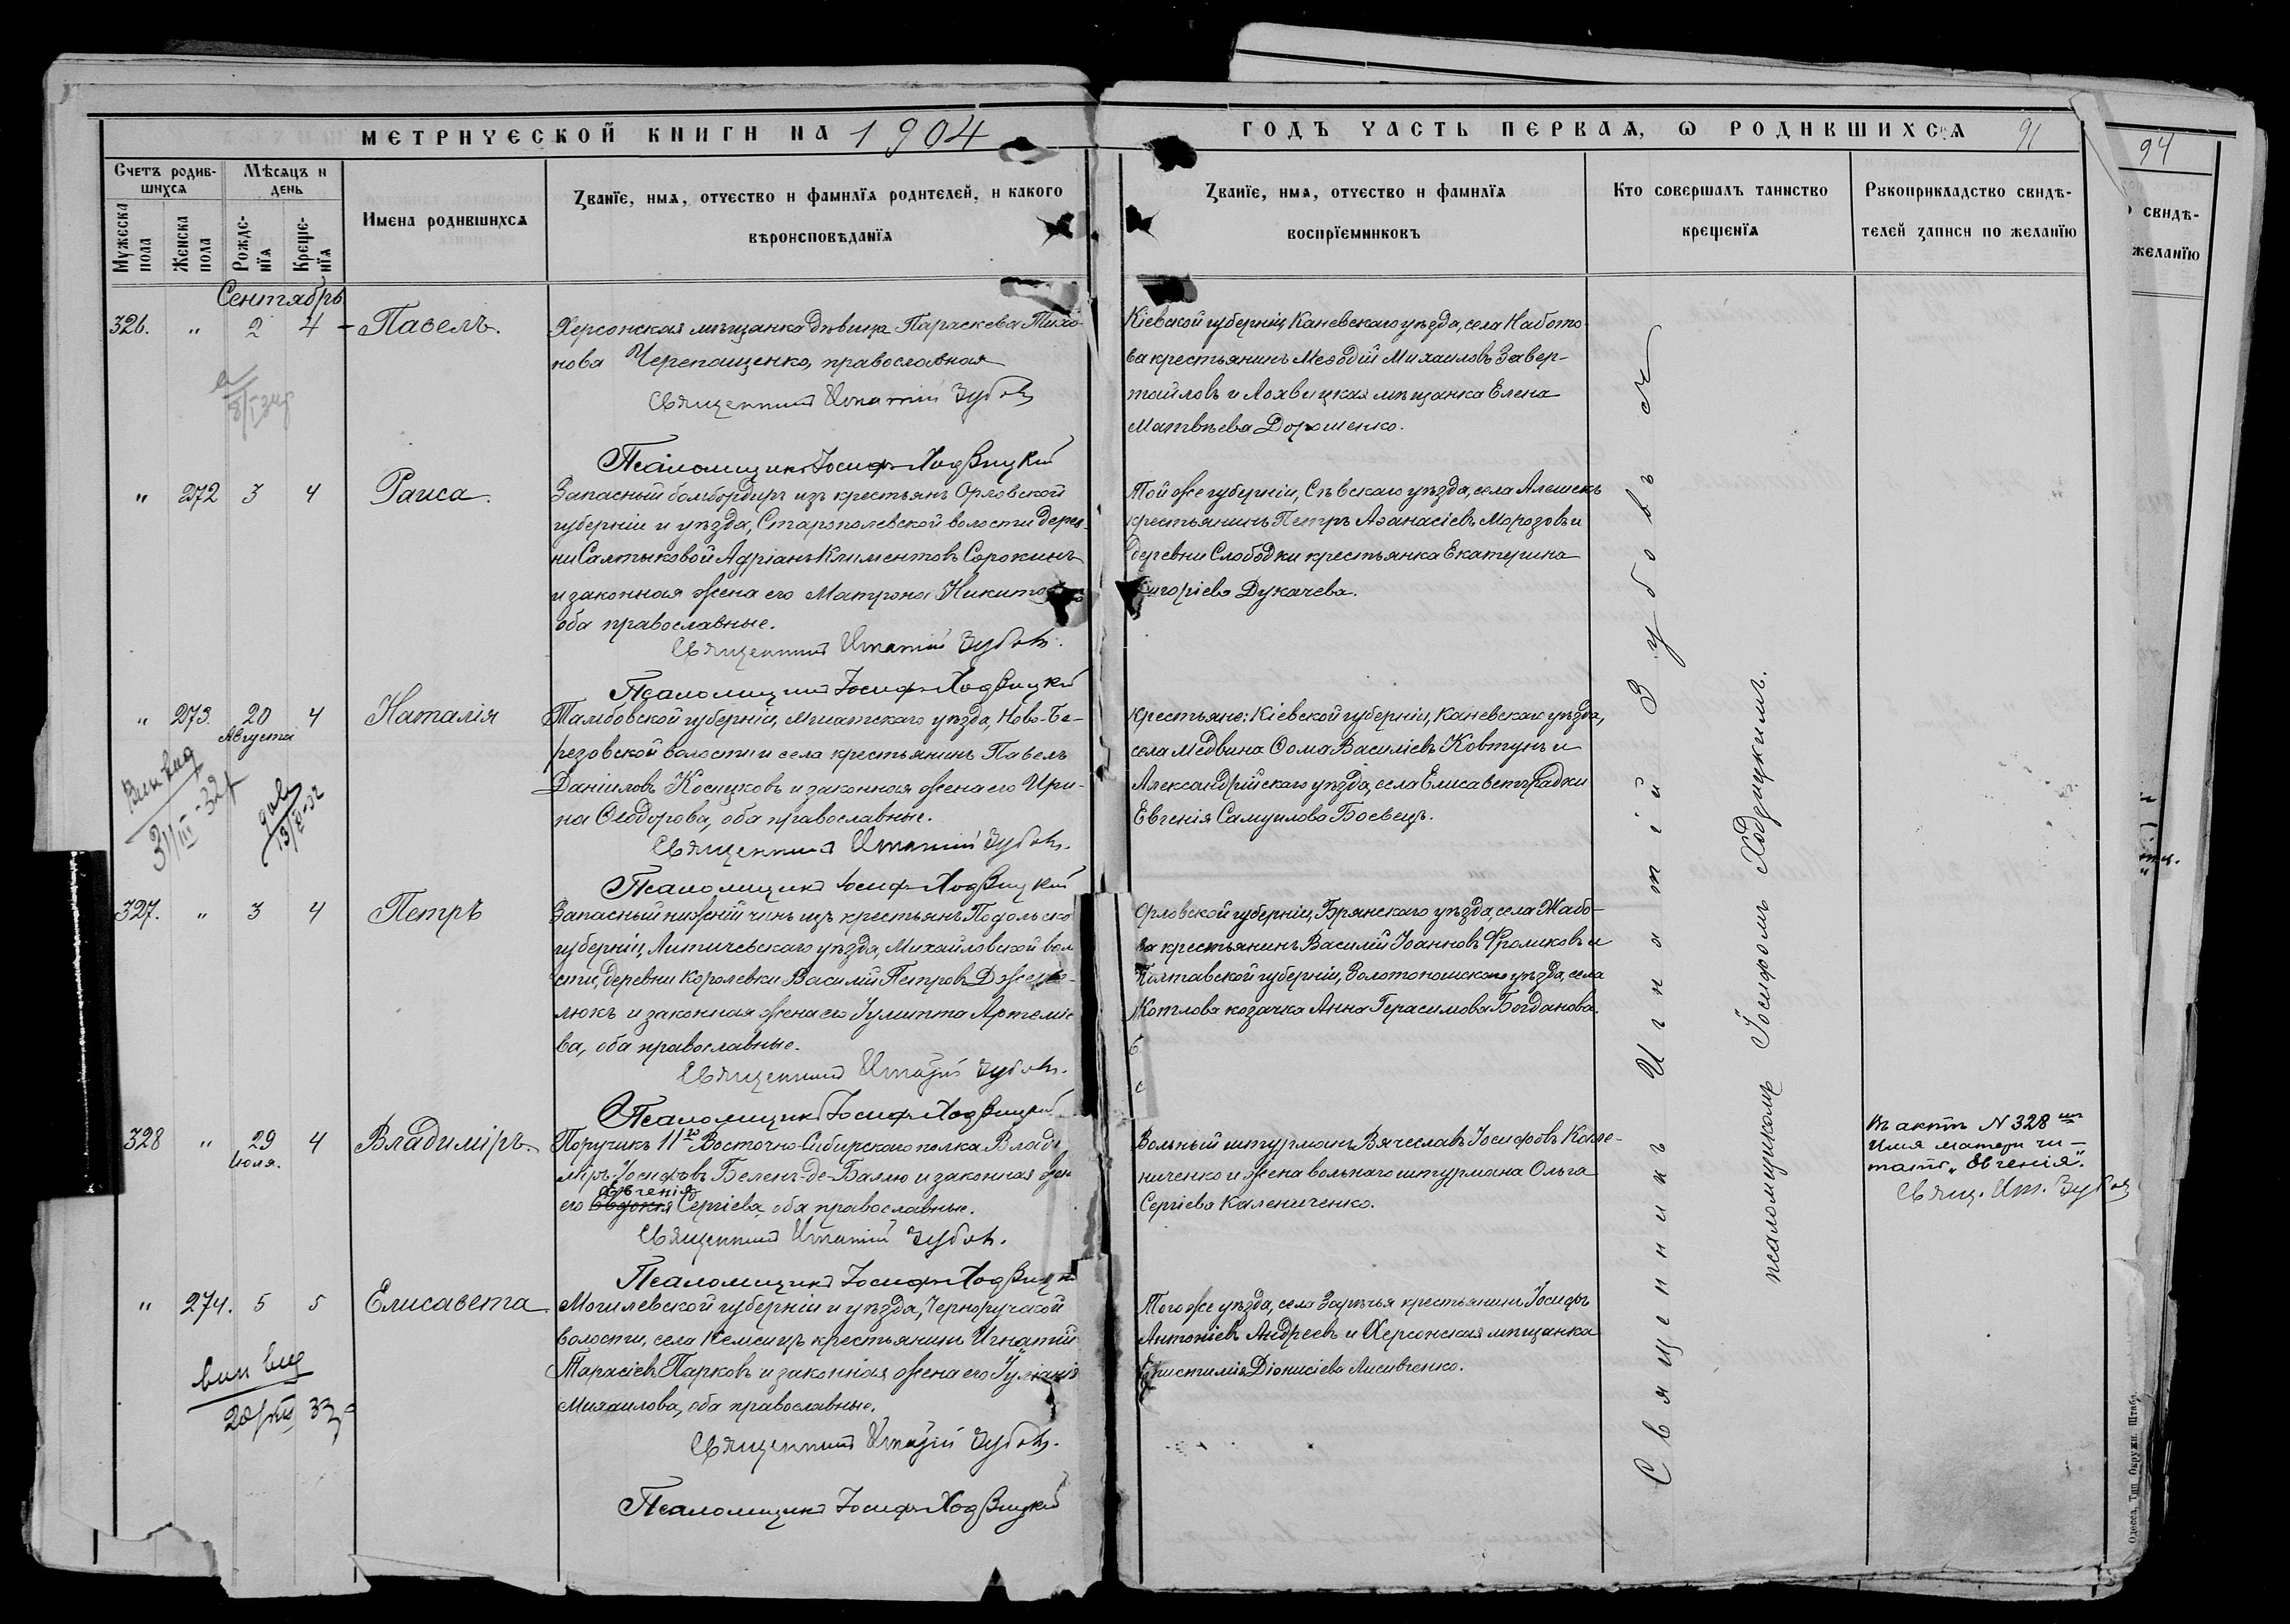 МЕТРИЧЕСКОЙ КНИГИ НА 1904
ГОДЪ ЧАСТЬ ПЕРВАЯ, Ѡ РОДИВШИХСЯ 91
94
Счетъ родив-
шихся
Мѣсяцъ и
день
Мужеска
пола
Женска
пола
Рожде-
нїя
Креще-
нїя
Имена родившихся
Званїе, имя, отчество и фамилїя родителей, и какого
вѣроисповѣданїя
Званїе, имя, отчество и фамилїя
воспрїемниковъ
Кто совершалъ таинство
крещенїя
Рукоприкладство свидѣ-
телей записи по желанїю
свидѣ-
желанїю
Сентябрь
326. " 2 4 Павелъ.
Херсонская мѣщанка дѣвица Параскева Тихо-
нова Черепащенко, православная
Священникъ Игнатій Зубовъ
Псаломщикъ Іосифъ Ходзицкій
Кіевской губерніи, Каневскаго уѣзда, села
ва крестьянинъ Меѳодій Михаиловъ Завер-
тайловъ и Лохвицкая мѣщанка Елена
Матвѣева Дорошенко.
" 272 3 4 Раиса.
Запасный бомбардиръ изъ крестьянъ Орловской
губерніи и уѣзда, Старополевской волости дерев-
ни Салтыковой Адріанъ Климентовъ Сорокинъ
и законная жена его Матрона Никитова
оба православные.
Священникъ Игнатій Зубовъ.
Псаломщикъ Іосифъ Ходзицкій
Той же губерніи, Сѣвскаго уѣзда, села Алешекъ
крестьянинъ Петръ Аѳанасіевъ Морозовъ и
деревни Слободки крестьянка Екатерина
Григоріева Дукачева.
" 273. 20 4 Наталія
Августа
Тамбовской губерніи, уѣзда, Ново-Бе-
резовской волости и села крестьянинъ Павелъ
Даніиловъ Косицковъ и законная жена его Ири-
на Ѳеодорова, оба православные.
Священникъ Игнатій Зубовъ.
Псаломщикъ Іосифъ Ходзицкій
Крестьяне: Кіевской губерніи, Каневскаго уѣзда,
села Медвина Ѳома Василіевъ Ковтунъ и
Александрійскаго уѣзда, села Елисаветградки
Евгенія Самуилова Боевецъ.
327. " 3 4 Петръ
Запасный нижній чинъ изъ крестьянъ Подольско
губерніи, Литичевскаго уѣзда, Михайловской вол
сти, деревни Королевки Василій Петровъ
люкъ и законная жена его Іулитта Артеміе
ва, оба православные.
Священникъ Игнатій Зубовъ.
Псаломщикъ Іосифъ Ходзицкій
Орловской губерніи, Брянскаго уѣзда, села Жабо-
ва крестьянинъ Василій Іоанновъ Фроликовъ и
Полтавской губерніи, Золотоношскаго уѣзда, села
Жотлова козачка Анна Герасимова Богданова.
328 " 29 4 Владиміръ.
Іюля.
Поручикъ 11го Восточно-Сибирскаго полка Влади
міръ Іосифовъ Беленъ-де-Баллю и законная жен
Евгенія
его Евдокія Сергіева, оба православные.
Священникъ Игнатій Зубовъ.
Псаломщикъ Іосифъ Ходзицкій
Вольный штурманъ Вячеславъ Іосифовъ Кале-
ниченко и жена вольнаго штурмана Ольга
Сергіева Калениченко.
Въ актѣ N 328мъ
имя матери чи-
тать „Евгенія".
Свящ. Игн. Зубовъ
" 274. 5 5 Елисавета
Могилевской губерніи и уѣзда, Черноручской
волости, села крестьянинъ Игнатій
Тарасіевъ Парковъ и законная жена его Іуліанія
Михаилова, оба православные.
Священникъ Игнатій Зубовъ.
Псаломщикъ Іосифъ Ходзицкій
Того же уѣзда, села Зарѣчья крестьянинъ Іосифъ
Антоніевъ Андреевъ и Херсонская мѣщанка
Діонисіева Лисивченко.
Священникъ Игнатій Зубовъ съ
псаломщикомъ Іосифомъ Ходзицкимъ.
Одесса, Тип. Окружн. Штаба